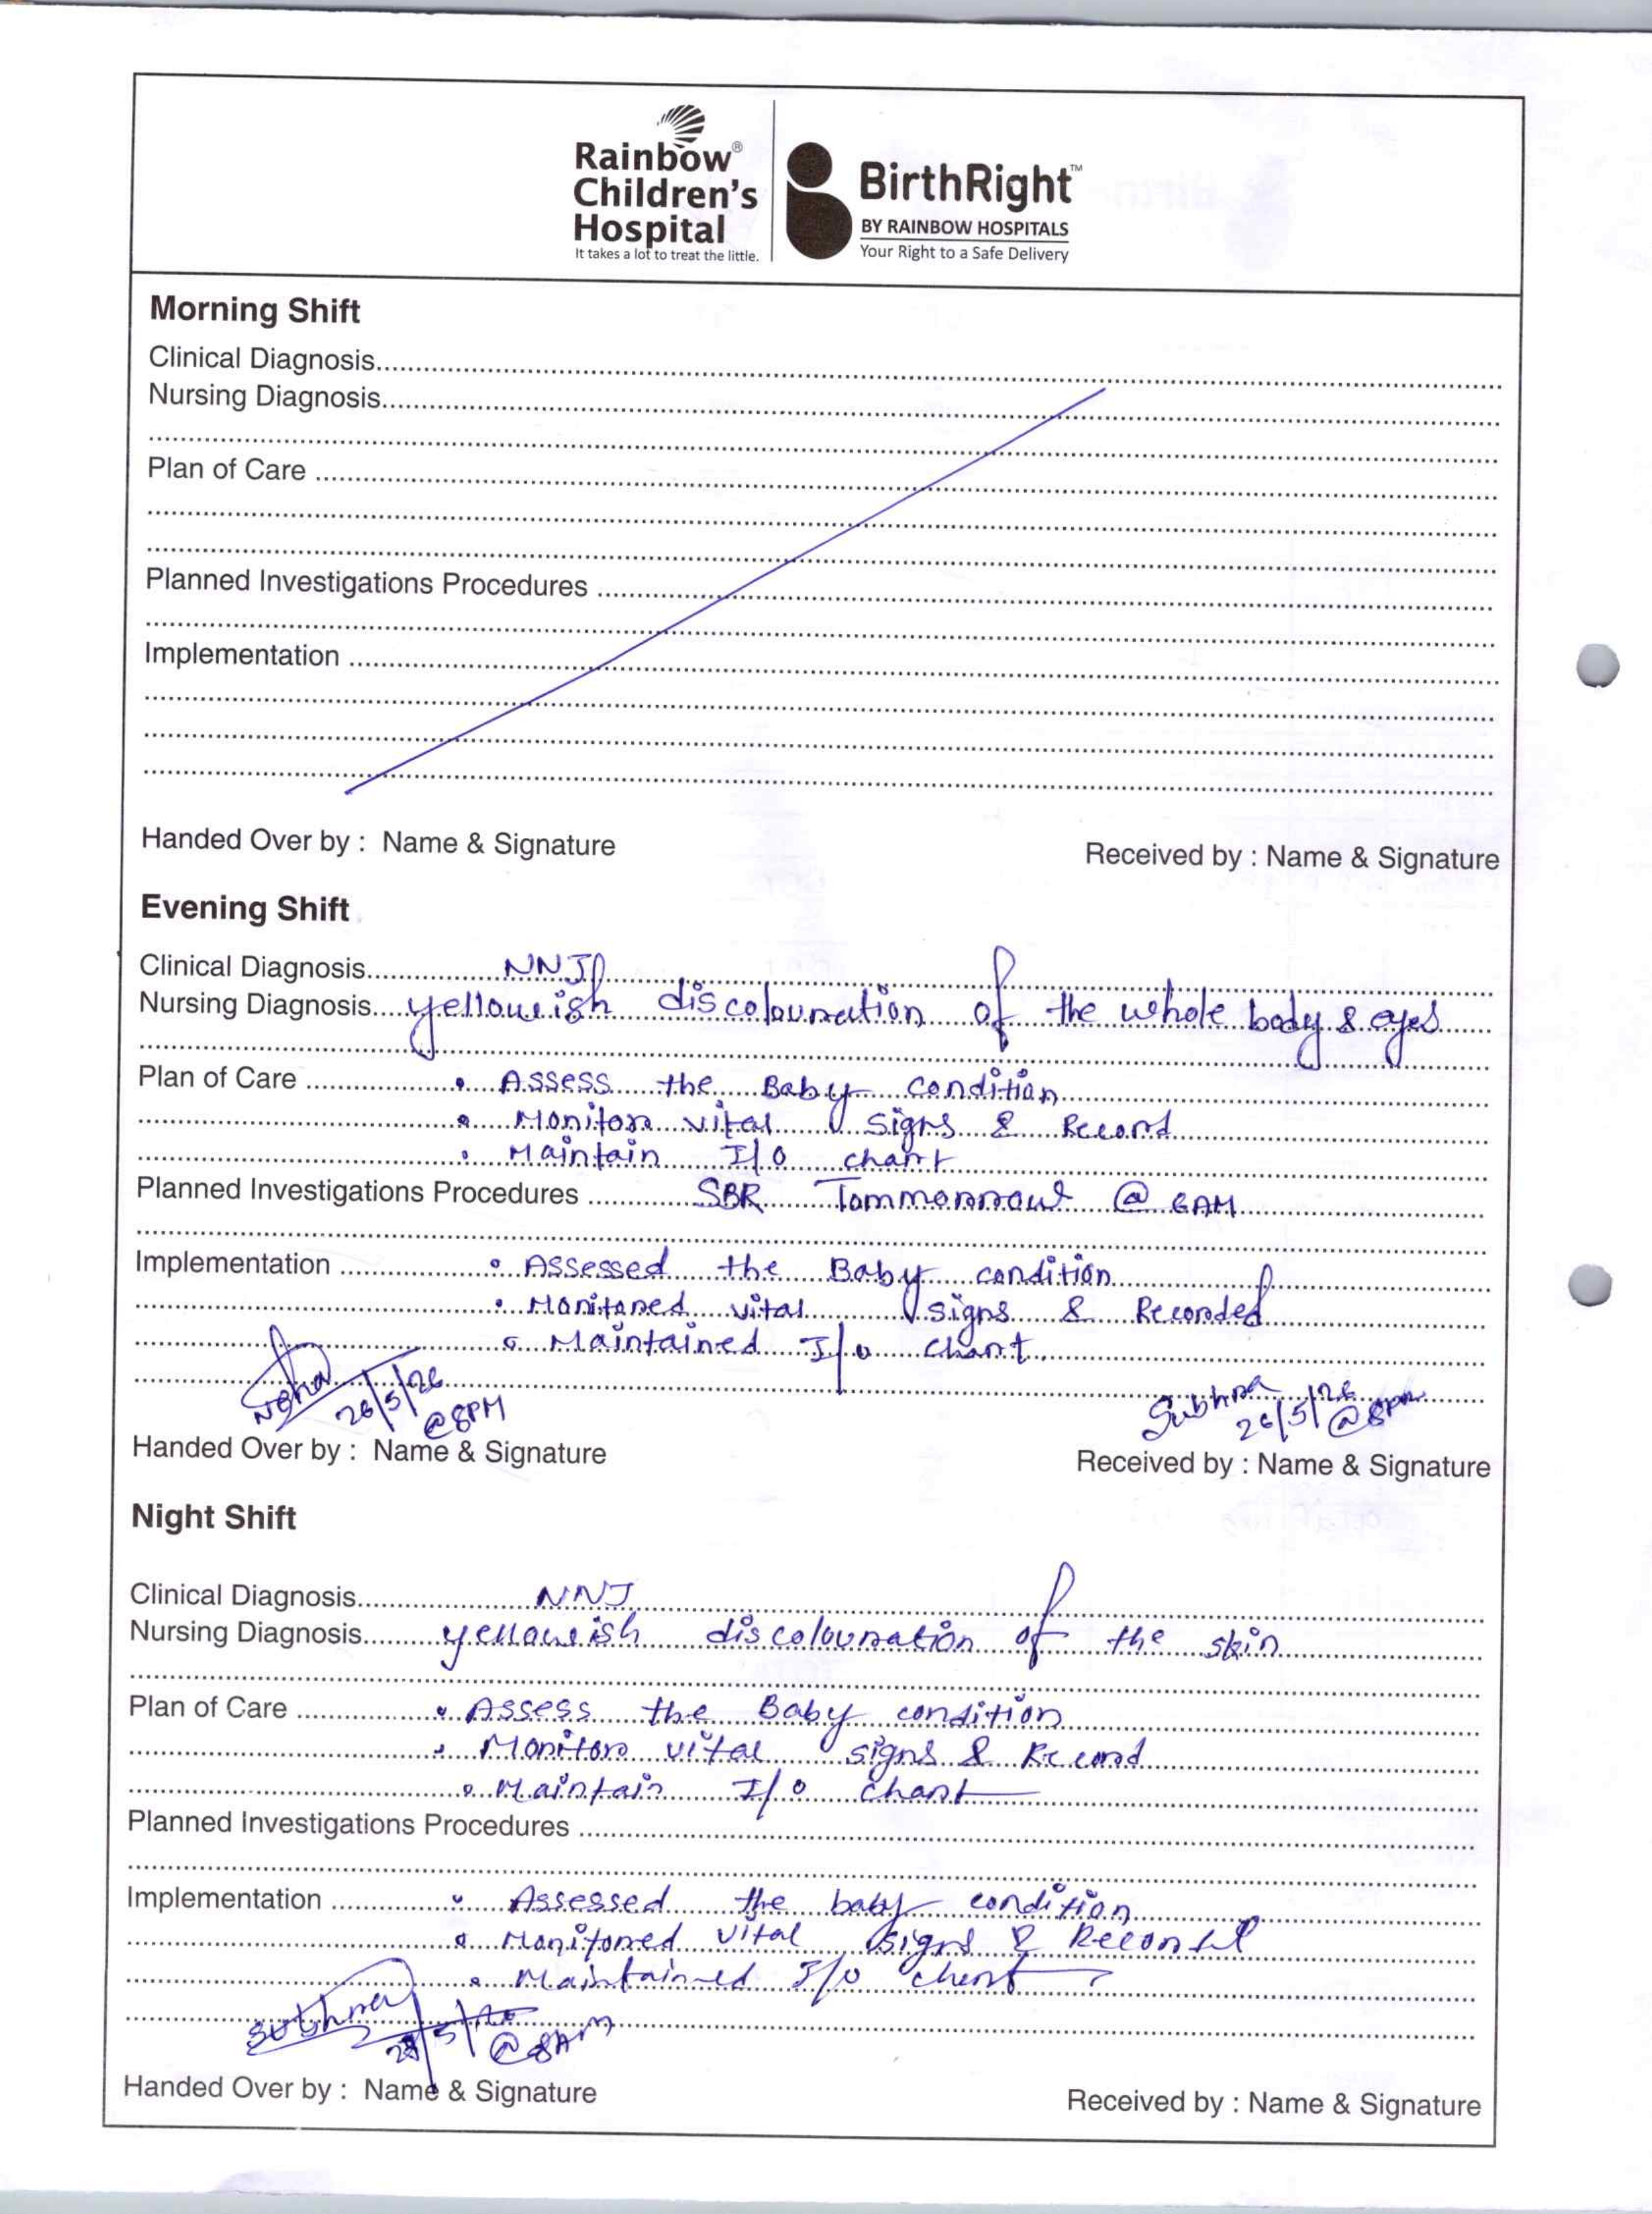 Rainbow®
Children's
Hospital
It takes a lot to treat the little.
BirthRight™
BY RAINBOW HOSPITALS
Your Right to a Safe Delivery
Morning Shift
Clinical Diagnosis
Nursing Diagnosis
Plan of Care
Planned Investigations Procedures
Implementation
Handed Over by : Name & Signature Received by : Name & Signature
Evening Shift
Clinical Diagnosis NNJ
Nursing Diagnosis yellowish discolouration of the whole body & eyes
Plan of Care • Assess the Baby condition
• Monitor vital signs & Record
• Maintain I/O chart
Planned Investigations Procedures SBR Tommorrow @ 6AM
Implementation • Assessed the Baby condition
• Monitored vital signs & Recorded
• Maintained I/O chart
Neha 26/5/26 @8PM Subhra 26/5/26 @8PM
Handed Over by : Name & Signature Received by : Name & Signature
Night Shift
Clinical Diagnosis NNJ
Nursing Diagnosis yellowish discolouration of the skin
Plan of Care • Assess the Baby condition
• Monitor vital signs & Record
• Maintain I/O chart
Planned Investigations Procedures
Implementation • Assessed the baby condition
• Monitored vital signs &
• Maintained I/O chart
@8AM
Handed Over by : Name & Signature Received by : Name & Signature